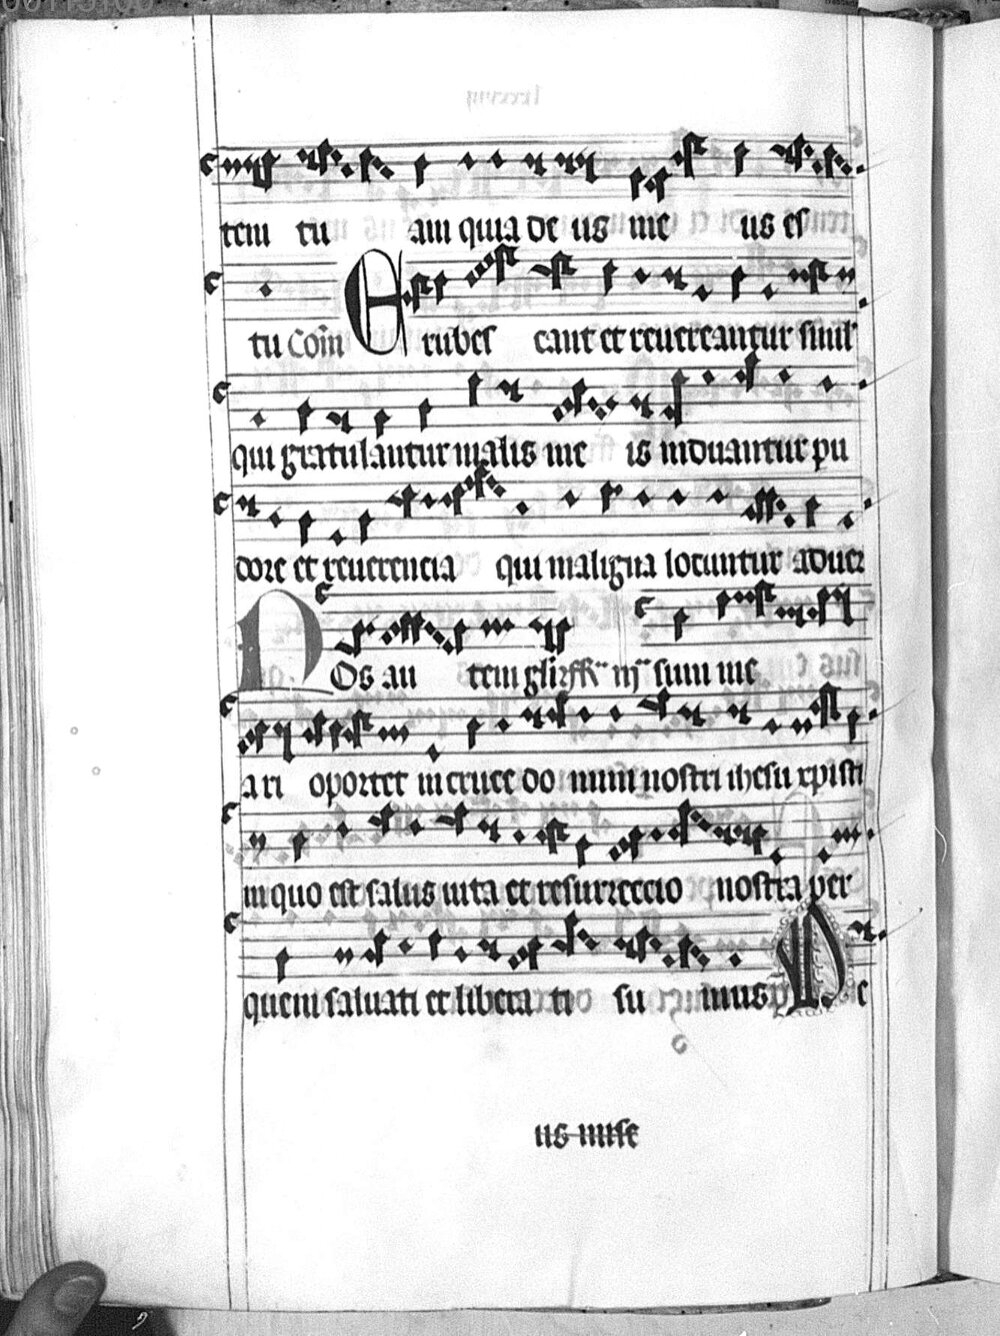 tem tu am quia de us me us es
tu Com̄ Erubes cant et reuereantur simul
qui gratulantur malis me is induantur pu
dore et reuerencia qui maligna locuntur aduer
Nos au tem sum me
ari oportet in cruce do mini nostri ihesu xpisti
in quo est salus uita et resurreccio nostra per
quem saluati et libera ti su mus Ps De
us mise